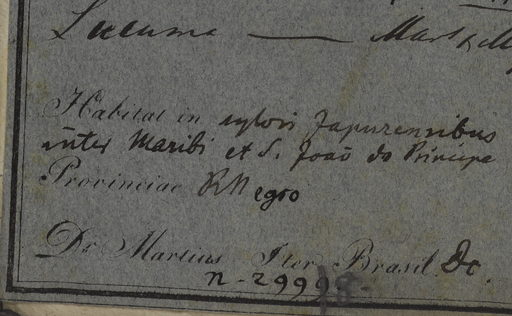 Lucuma — Mart &
Habitat in sylvis Japurensibus
inter Maribi et S. João do Principe
Provinciae R Negro
Dr Martius Iter Brasil. &c.
n - 2999